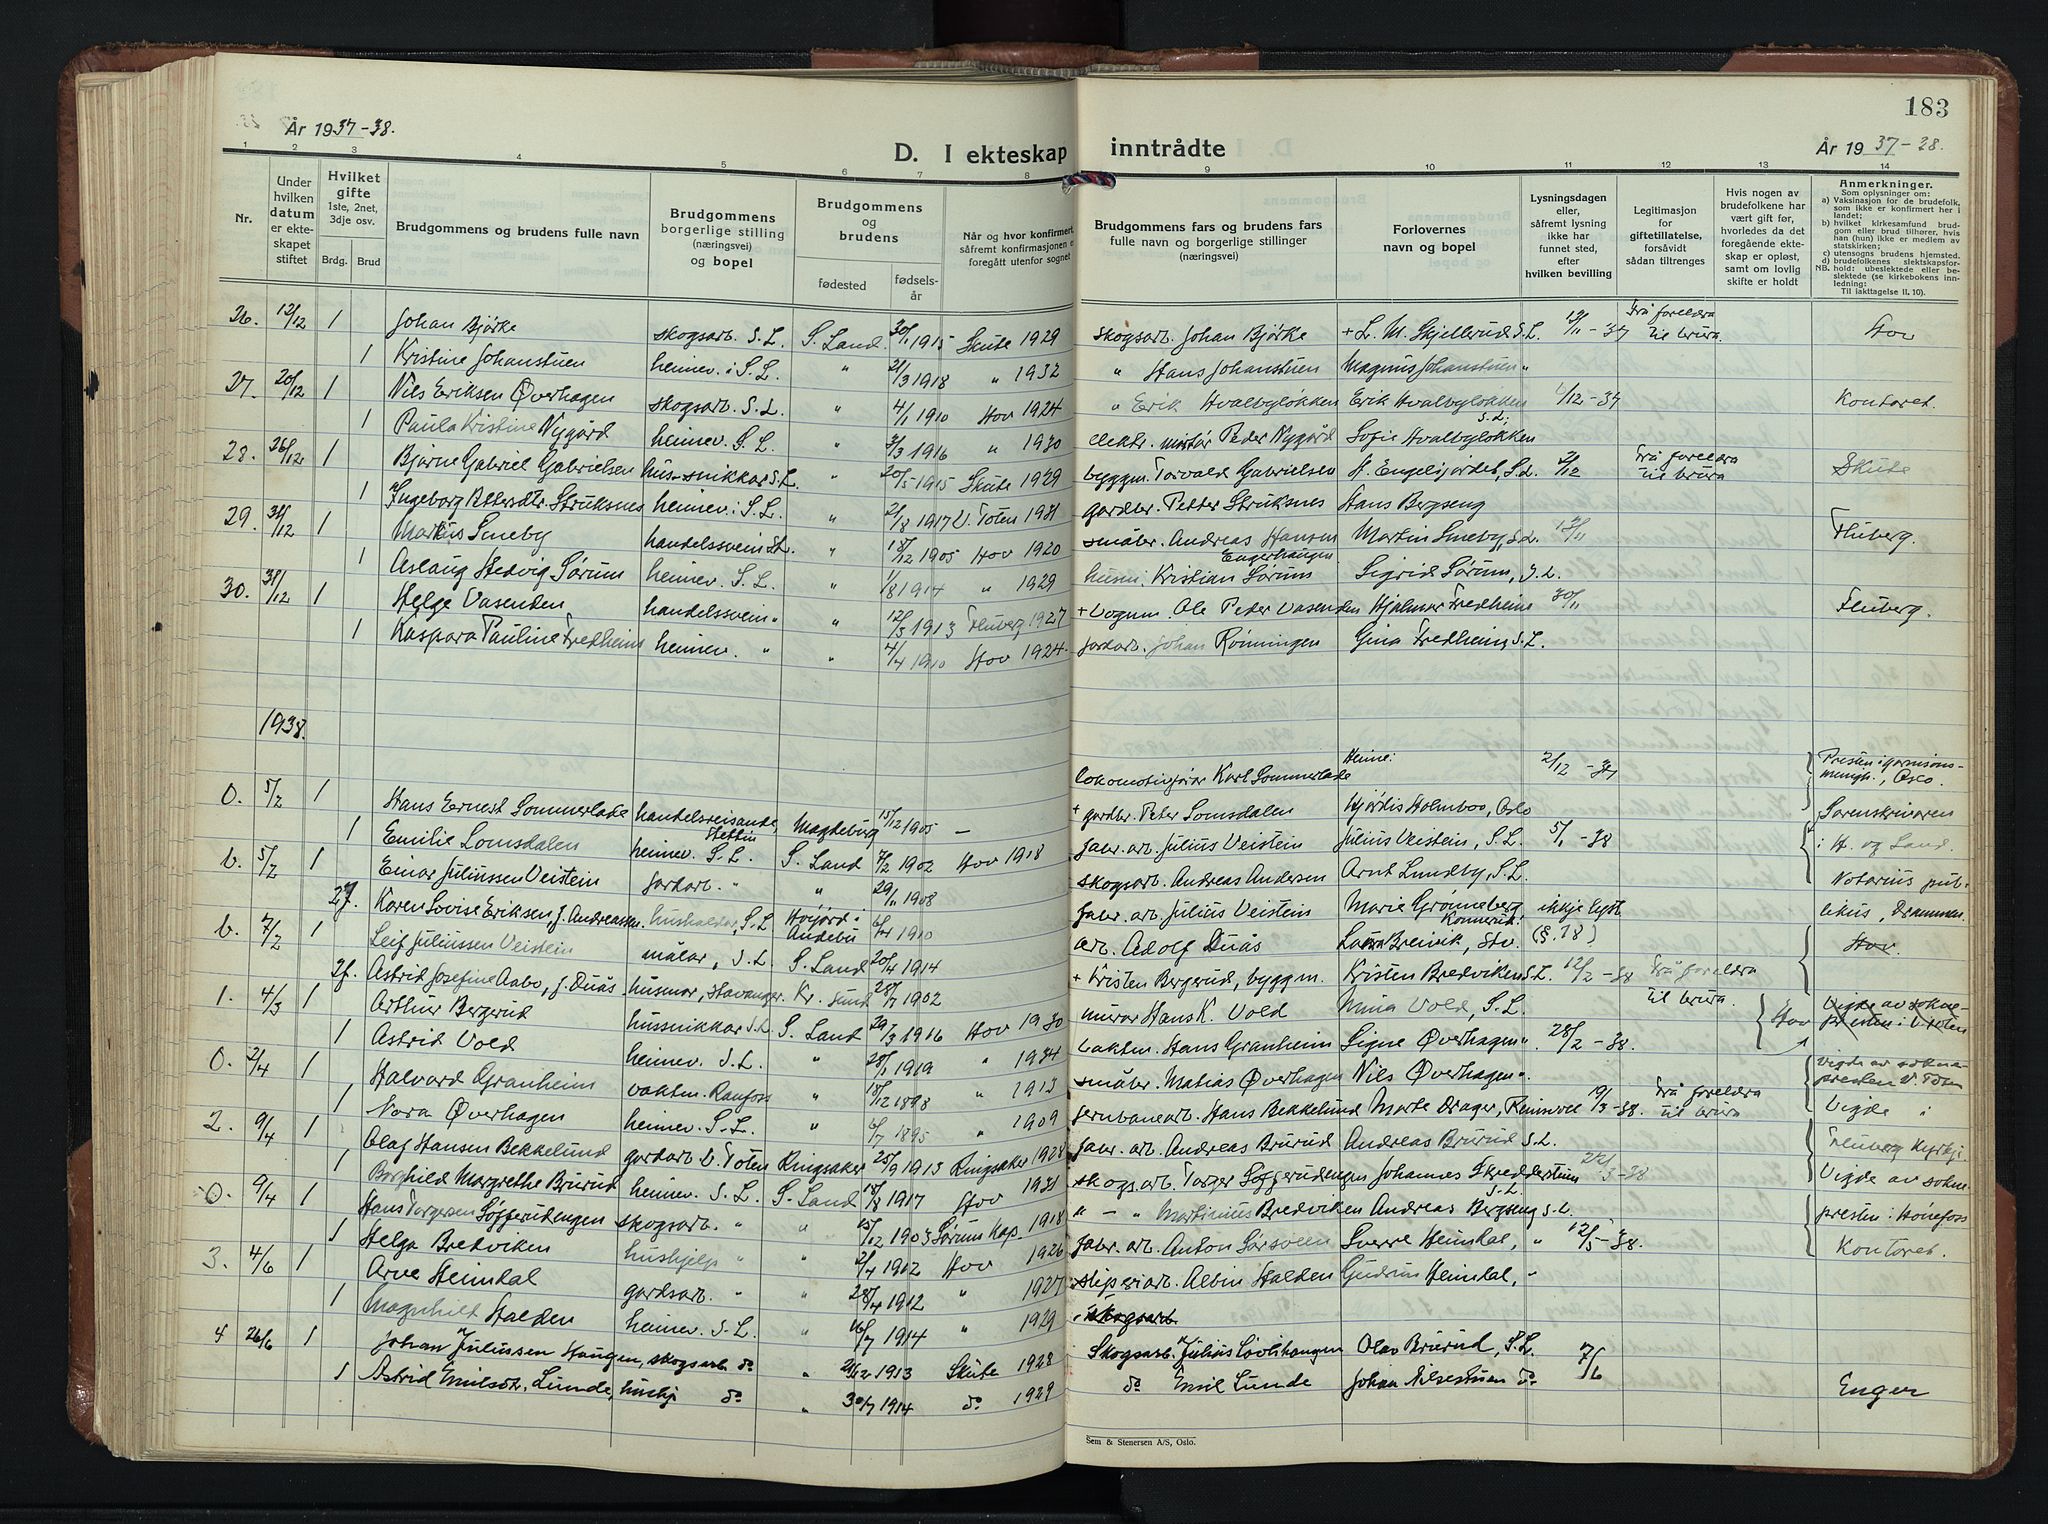 183
År 1937-38.
D. I ekteskap inntrådte
År 1937-38.
1 2 3 4 5 6 7 8 9 10 11 12 13 14
Nr.
Under hvilken datum er ekteskapet stiftet
Hvilket gifte 1ste, 2net, 3dje osv.
Brdg. Brud
Brudgommens og brudens fulle navn
Brudgommens borgerlige stilling (næringsvei) og bopel
Brudgommens og brudens
fødested fødselsår
Når og hvor konfirmert, såfremt konfirmasjonen er foregått utenfor sognet
Brudgommens fars og brudens fars fulle navn og borgerlige stillinger (næringsvei)
Forlovernes navn og bopel
Lysningsdagen eller, såfremt lysning ikke har funnet sted, efter hvilken bevilling
Legitimasjon for giftetillatelse, forsåvidt sådan tiltrenges
Hvis nogen av brudefolkene har vært gift før, hvorledes da det foregående ekteskap er opløst, samt om lovlig skifte er holdt
Anmerkninger.
Som oplysninger om:
a) Vaksinasjon for de brudefolk, som ikke er konfirmert her i landet;
b) hvilket kirkesamfund brudgom eller brud tilhører, hvis han (hun) ikke er medlem av statskirken;
c) utensogns brudens hjemsted.
d) brudefolkenes slektskapsforhold: ubeslektede eller beslektede (se kirkebokens innledning:
NB.
Til iakttagelse II. 10).
26. 12/12 1 Johan Bjørke skogsarb. S. L. S. Land 30/1 1915 Skute 1929 skogsarb. Johan Bjørke + L. M. Skjellerud S. L. 12/11-37 Frå foreldra til brura. Hov
1 Kristine Johanstuen heimev. i S. L. " 21/3 1918 " 1932 " Hans Johanstuen Magnus Johanstuen "
27. 20/12 1 Nils Eriksen Øverhagen skogsarb. S. L. " 4/1 1910 Hov 1924 " Erik Hvalbyløkken Erik Hvalbyløkken S. L. 1/12-37 Kontoret.
1 Paula Kristine Nygård heimev. S. L. " 3/3 1916 " 1930 elektr. montør Peder Nygård Sofie Hvalbyløkken
28. 26/12 1 Bjarne Gabriel Gabrielsen hus-snikkar S. L. " 20/5 1915 Skute 1929 byggm. Torvald Gabrielsen H. Engelsjordet, S. L. 2/12 Frå foreldra til brura Skute
1 Ingeborg Pettersdtr. Struksnes heimev. i S. L. " 21/8 1917 V. Toten 1931 gardbr. Petter Struksnes Hans Bergseng
29. 31/12 1 Markus Smeby handelssvein S. L. " 18/12 1905 Hov 1920 småbr. Andreas Hansen Engerhaugen Martin Smeby, S. L. Fluberg.
1 Aslaug Hedvig Sørum heimev. S. L. " 1/8 1914 " 1929 husm. Kristian Sørum Sigrid Sørum, S. L.
30. 31/12 1 Helge Vasenden handelssvein " " 12/3 1913 Fluberg 1927 + Vognm. Ole Peder Vasenden Hjalmar Fredheim 30/11 Fluberg.
1 Kaspara Pauline Fredheim heimev. " " 4/4 1910 Hov 1924. jordarb. Johan Rønningen Gina Fredheim, S. L.
1938.
0. 5/2 1 Hans Ernest Sommerlade handelsreisande, Stettin Magdeburg 15/12 1905 — lokomotivførar Karl Sommerlade 2/12-37 Presten i garnisonsmenigh., Oslo.
1 Emilie Lomsdalen heimev. S. L. S. Land 7/2 1902 Hov 1918 + gardbr. Peter Lomsdalen Hjørdis Holmboo, Oslo
b. 5/2 1 Einar Juliussen Veistein jordarb. " " 29/11 1908 fabr. arb. Julius Veistein Julius Veistein, S. L. 5/1-38 Sorenskrivaren i H. og Land.
2f. Karen Lovise Eriksen, f. Andreassen hushaldar, S. L. Høijord i Andebu 1910 skogsarb. Andreas Andersen Arnt Lundby, S. L.
b. 7/2 1 Leif Juliussen Veistein målar, S. L. S. Land 20/4 1914 fabr. arb. Julius Veistein Marie Grønneberg Konnerud ikkje lyst (§. 18) Notarius publikus, Drammen.
2f. Astrid Josefine Aabo, f. Duås husmor, Stavanger. Kr. sund 28/7 1902 arb. Adolf Duås Laura Breivik, Hov.
1. 4/3 1 Arthur Bergerud hussnikkar S. L. S. Land 29/3 1916 Hov 1930 + Kristen Bergerud, byggm. Kristen Bredviken S. L. 12/2-38 Frå foreldra til brura. Hov
1 Astrid Vold heimev. S. L. " 28/1 1919 " 1934 murar Hans K. Vold Mina Vold, S. L.
0. 2/4 1 Halvard Granheim vaktm. Raufoss " 18/12 1898 " 1913 vaktm. Hans Granheim Signe Øverhagen ". 28/2-38. Vigde av soknepresten V. Toten
1 Nora Øverhagen heimev. S. L. " 1895 " 1909 småbr. Matias Øverhagen Nils Øverhagen ".
2. 9/4 1 Olaf Hansen Bekkelund gardarb. V. Toten Ringsaker 25/9 1913 Ringsaker 1928 jernbanearb. Hans Bekkelund Marte Drager, Reinsvoll 19/3-38. Frå foreldra til brura Vigde i Fluberg kyrkje
1 Borghild Margrethe Brurud heimev. S. L. S. Land 18/8 1917 Hov 1931 fabr. arb. Andreas Brurud Andreas Brurud S. L.
0. 9/4 1 Hans Torgersen Søfferudengen skogsarb. " " 15/12 1903 Sørum kap. 1918 skogsarb. Torger Søfferudengen Johannes Skreddertun S. L. 22/3-38 Vigde av soknepresten i Hønefoss
1 Helga Bredviken hushjelp " " 2/4 1902 Hov 1926 " - " Martinius Bredviken Andreas Bergseng S. L.
3. 4/6 1 Arve Heimdal gardsarb. " " 28/4 1912 " 1927 fabr. arb. Anton Sørsveen Sverre Heimdal, " 12/5-38. Kontoret.
1 Magnhild Halden heimev. S. L. " 16/7 1914 " 1929 sliperiarb. Albin Halden Gudrun Heimdal, "
4 26/6 1 Johan Juliussen Haugen, skogsarb. do " 21/12 1913 Skute 1928 Skogsarb. Julius Lovlihaugen Olav Brurud, S. L. 7/6 Enger
1 Astrid Emilsdtr. Lunde, hushj do " 30/7 1914 do 1929 do Emil Lunde Johan Nilsestuen do
Sem & Stenersen A/S, Oslo.